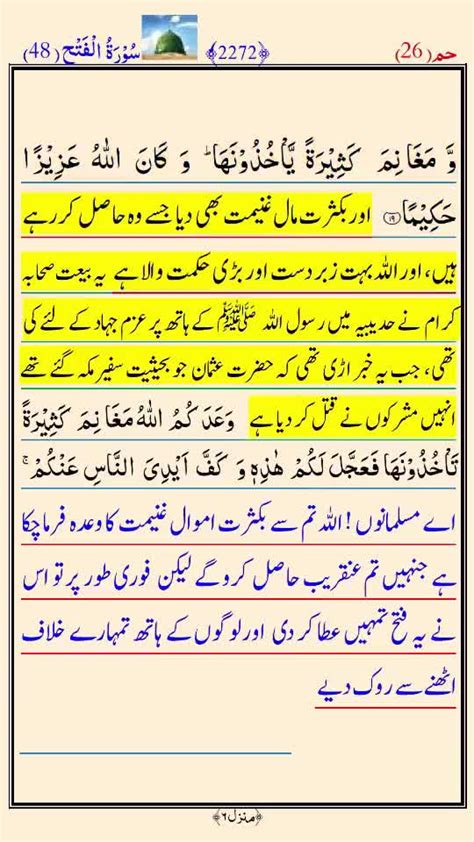 حم (26) ﴿2272﴾ سُوْرَةُ الْفَتْح (48)
وَّ مَغَانِمَ كَثِيْرَةً يَّاْخُذُوْنَهَا ؕ وَ كَانَ اللّٰهُ عَزِيْزًا
حَكِيْمًا ﴿۱۹﴾ اور بکثرت مال غنیمت بھی دیا جسے وہ حاصل کر رہے
ہیں، اور اللہ بہت زبردست اور بڑی حکمت والا ہے یہ بیعت صحابہ
کرام نے حدیبیہ میں رسول اللہ ﷺ کے ہاتھ پر عزم جہاد کے لئے کی
تھی، جب یہ خبر اڑی تھی کہ حضرت عثمان جو بحیثیت سفیر مکہ گئے تھے
انہیں مشرکوں نے قتل کر دیا ہے وَعَدَكُمُ اللّٰهُ مَغَانِمَ كَثِيْرَةً
تَاْخُذُوْنَهَا فَعَجَّلَ لَكُمْ هٰذِهٖ وَ كَفَّ اَيْدِىَ النَّاسِ عَنْكُمْ ۚ
اے مسلمانوں ! اللہ تم سے بکثرت اموال غنیمت کا وعدہ فرما چکا
ہے جنہیں تم عنقریب حاصل کرو گے لیکن فوری طور پر تو اس
نے یہ فتح تمہیں عطا کر دی اور لوگوں کے ہاتھ تمہارے خلاف
اٹھنے سے روک دیے
﴿منزل ۶﴾